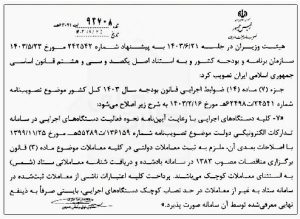 شماره ۹۴۷۰۸
هیئت وزیران در جلسه ۱۴۰۳/۶/۲۱ به پیشنهاد شماره ۲۴۲۵۴۲ مورخ ۱۴۰۳/۵/۲۳
سازمان برنامه و بودجه کشور و به استناد اصل یکصد و سی و هشتم قانون اساسی
جمهوری اسلامی ایران تصویب کرد:
جزء (۷) ماده (۱۴) ضوابط اجرایی قانون بودجه سال ۱۴۰۳ کل کشور موضوع تصویب‌نامه
مورخ ۱۴۰۳/۲/۱۶ به شرح زیر اصلاح می‌شود:
«۷- کلیه دستگاه‌های اجرایی با رعایت آیین‌نامه نحوه فعالیت دستگاه‌های اجرایی در سامانه
تدارکات الکترونیکی دولت موضوع تصویب‌نامه شماره مورخ ۱۳۹۹/۱۱/۲۵
با اصلاحات بعدی آن، ملزم به ثبت معاملات دولتی در کلیه معاملات موضوع ماده (۳) قانون
برگزاری مناقصات مصوب ۱۳۸۳ در سامانه یادشده و دریافت شناسه معاملاتی ستادی (شمس)
به استثنای معاملات کوچک می‌باشند. پرداخت کلیه اعتبارات ناشی از معاملات ثبت‌شده در
سامانه ستاد به غیر از معاملات در حد نصاب کوچک دستگاه‌های اجرایی، بایستی صرفاً به ذینفع
نهایی معرفی‌شده توسط آن سامانه صورت پذیرد.»